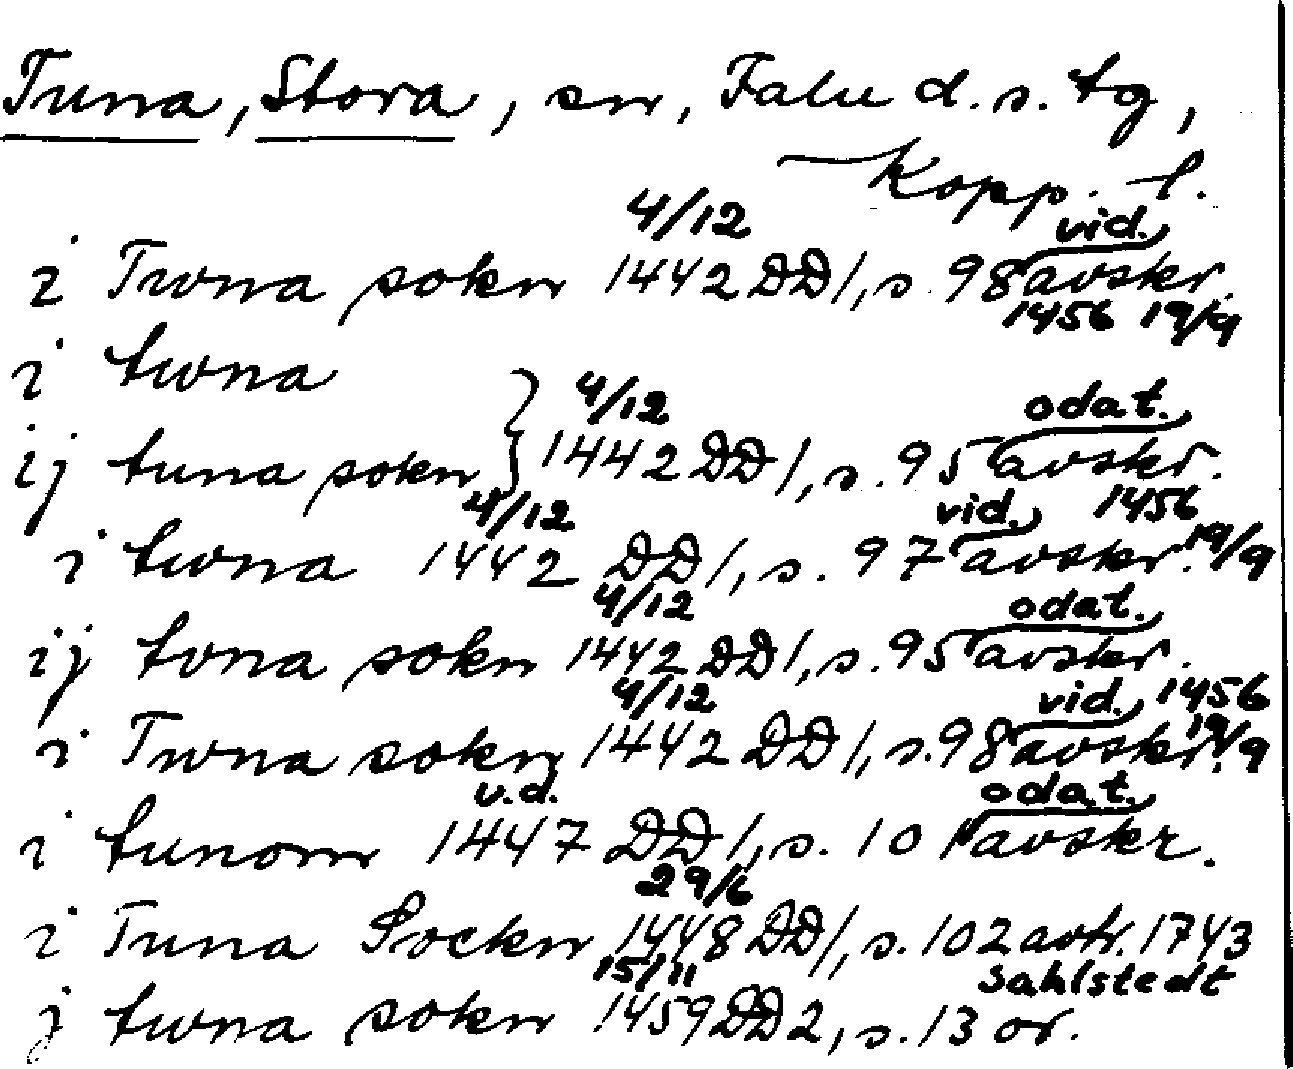 Tuna, Stora, sn, Falu d.s. tg,
Kopp. l.
4/12 vid.
i Twna sokn 1442 DD 1, s. 98 avskr.
1456 19/9
i twna
4/12 odat.
ij tuna sokn 1442 DD 1, s. 95 avskr.
4/12 vid. 1456
i twna 1442 DD 1, s. 97 avskr. 19/9
4/12 odat.
ij tvna sokn 1442 DD 1, s. 95 avskr.
4/12 vid. 1456
i Twna sokn 1442 DD 1, s. 98 avskr. 19/9
u.d. odat.
i tunom 1447 DD 1, s. 101 avskr.
29/6
i Tuna Sockn 1448 DD 1, s. 102 avtr. 1743
15/11 Sahlstedt
j twna sokn 1459 DD 2, s. 13 or.